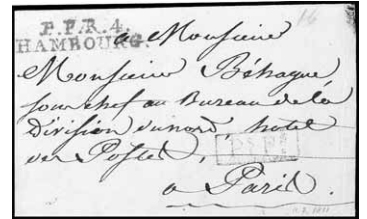 P.P.R.4.
HAMBOURG.
a Monsieur
Monsieur Béhague
sous chef au Bureau de la
Division du nord, hotel
des Postes,
a Paris.